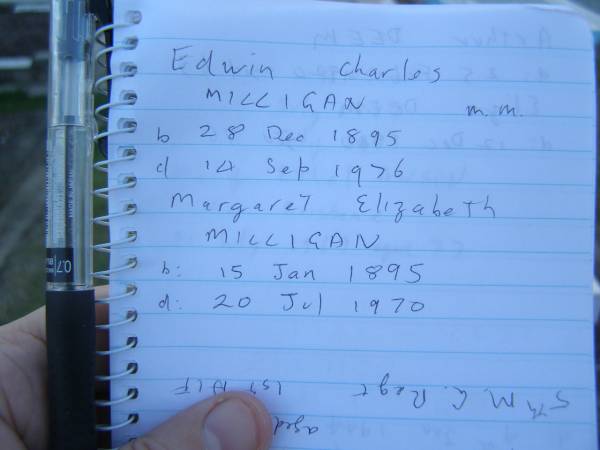 Edwin Charles
MILLIGAN m.m.
b 28 Dec 1895
d 14 Sep 1976
Margaret Elizabeth
MILLIGAN
b: 15 Jan 1895
d: 20 Jul 1970
5th M. G. Regt 1st AIF
aged
0.7